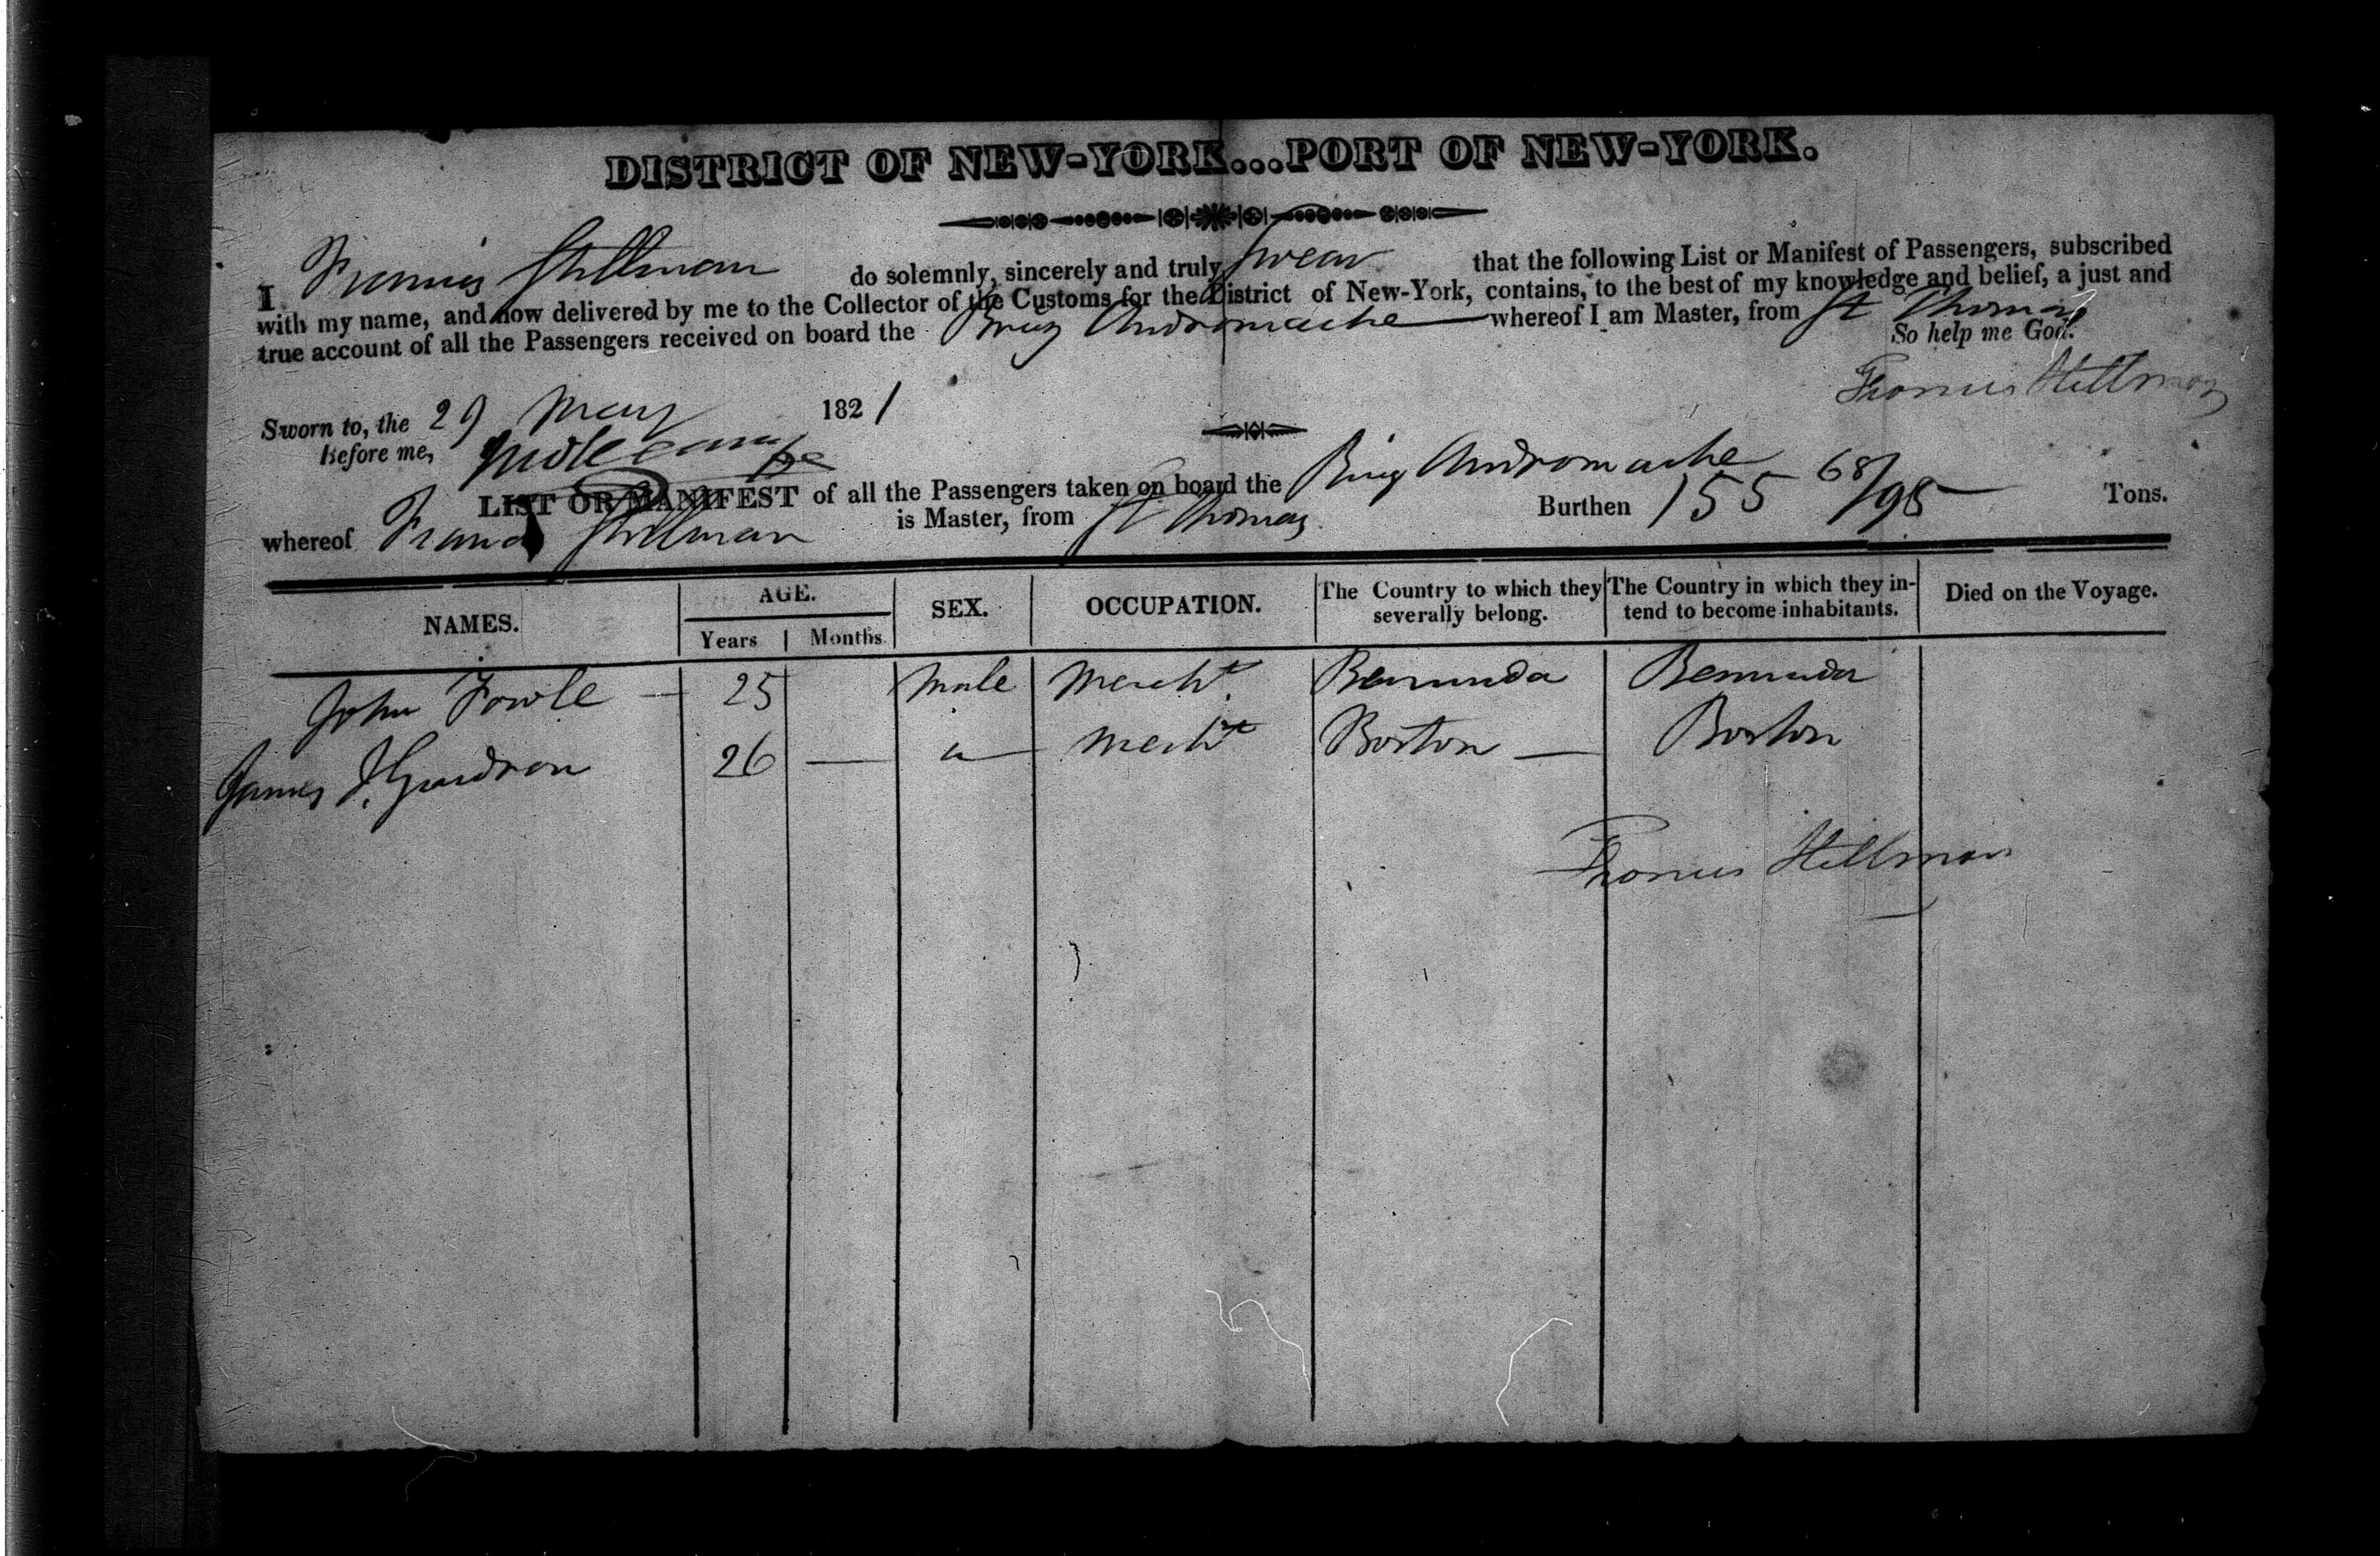 DISTRICT OF NEW-YORK...PORT OF NEW-YORK.
I Francis Stillman do solemnly, sincerely and truly swear that the following List or Manifest of Passengers, subscribed
with my name, and now delivered by me to the Collector of the Customs for the District of New-York, contains, to the best of my knowledge and belief, a just and
true account of all the Passengers received on board the Brig Andromache whereof I am Master, from St Thomas
So help me God.
Francis Stillman
Sworn to, the 29 May 1821
Before me,
LIST OR MANIFEST of all the Passengers taken on board the Brig Andromache Burthen 155 68/95 Tons.
whereof Francis Stillman is Master, from St Thomas
NAMES. AGE. SEX. OCCUPATION. The Country to which they severally belong. The Country in which they intend to become inhabitants. Died on the Voyage.
Years Months
John Fowle 25 Male Mercht. Bermuda Bermuda
James J. 26 — " — Mercht Boston — Boston
Francis Stillman